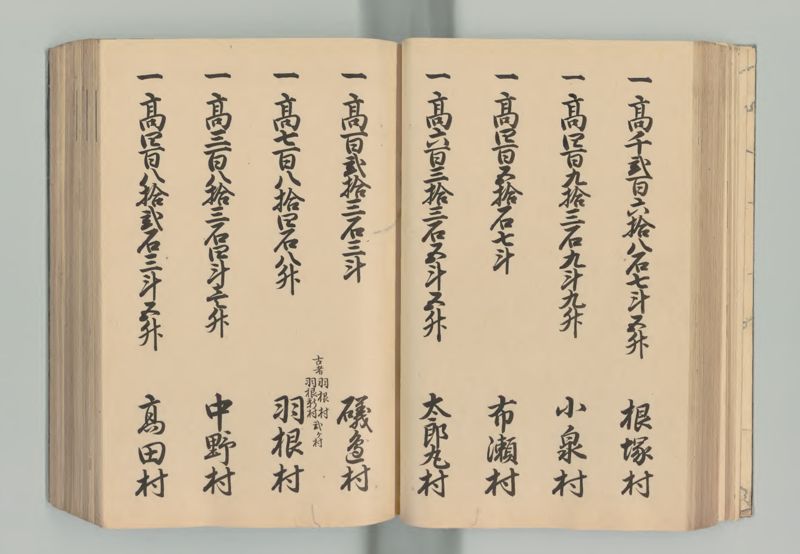 一高千弐百六拾八石七斗五升 根塚村
一高四百九拾三石九斗九升 小泉村
一高四百五拾石七斗 布瀬村
一高六百三拾三石五斗五升 太郎丸村
一高百弐拾三石三斗 磯邉村
古者羽根村
羽根新村弐ケ村
一高七百八拾四石八升 羽根村
一高三百八拾三石四斗壱升 中野村
一高四百八拾弐石三斗五升 高田村